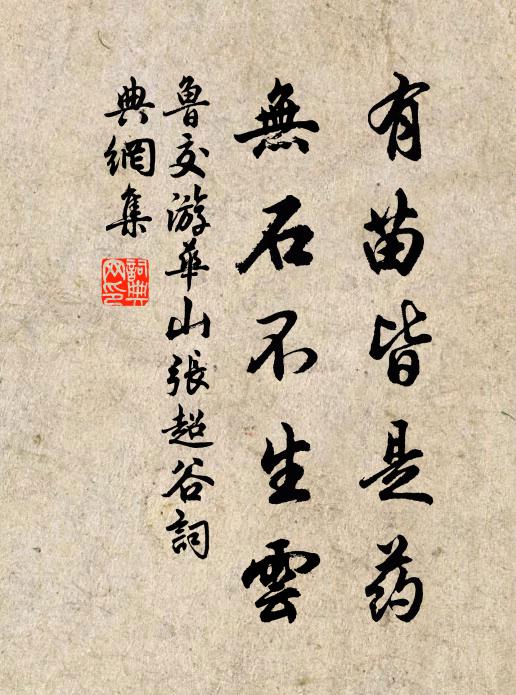 有苗皆是药
無石不生雲
魯交游華山張超谷詞
典網集
詞典网印